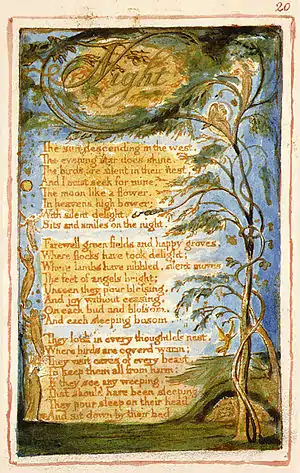 20
Night
The sun descending in the west.
The evening star does shine.
The birds are silent in their nest,
And I must seek for mine,
The moon like a flower,
In heavens high bower;
With silent delight,
Sits and smiles on the night.
Farewell green fields and happy groves,
Where flocks have took delight;
Where lambs have nibbled, silent moves
The feet of angels bright;
Unseen they pour blessing,
And joy without ceasing,
On each bud and blossom,
And each sleeping bosom.
They look in every thoughtless nest,
Where birds are coverd warm;
They visit caves of every beast,
To keep them all from harm:
If they see any weeping,
That should have been sleeping
They pour sleep on their head
And sit down by their bed.